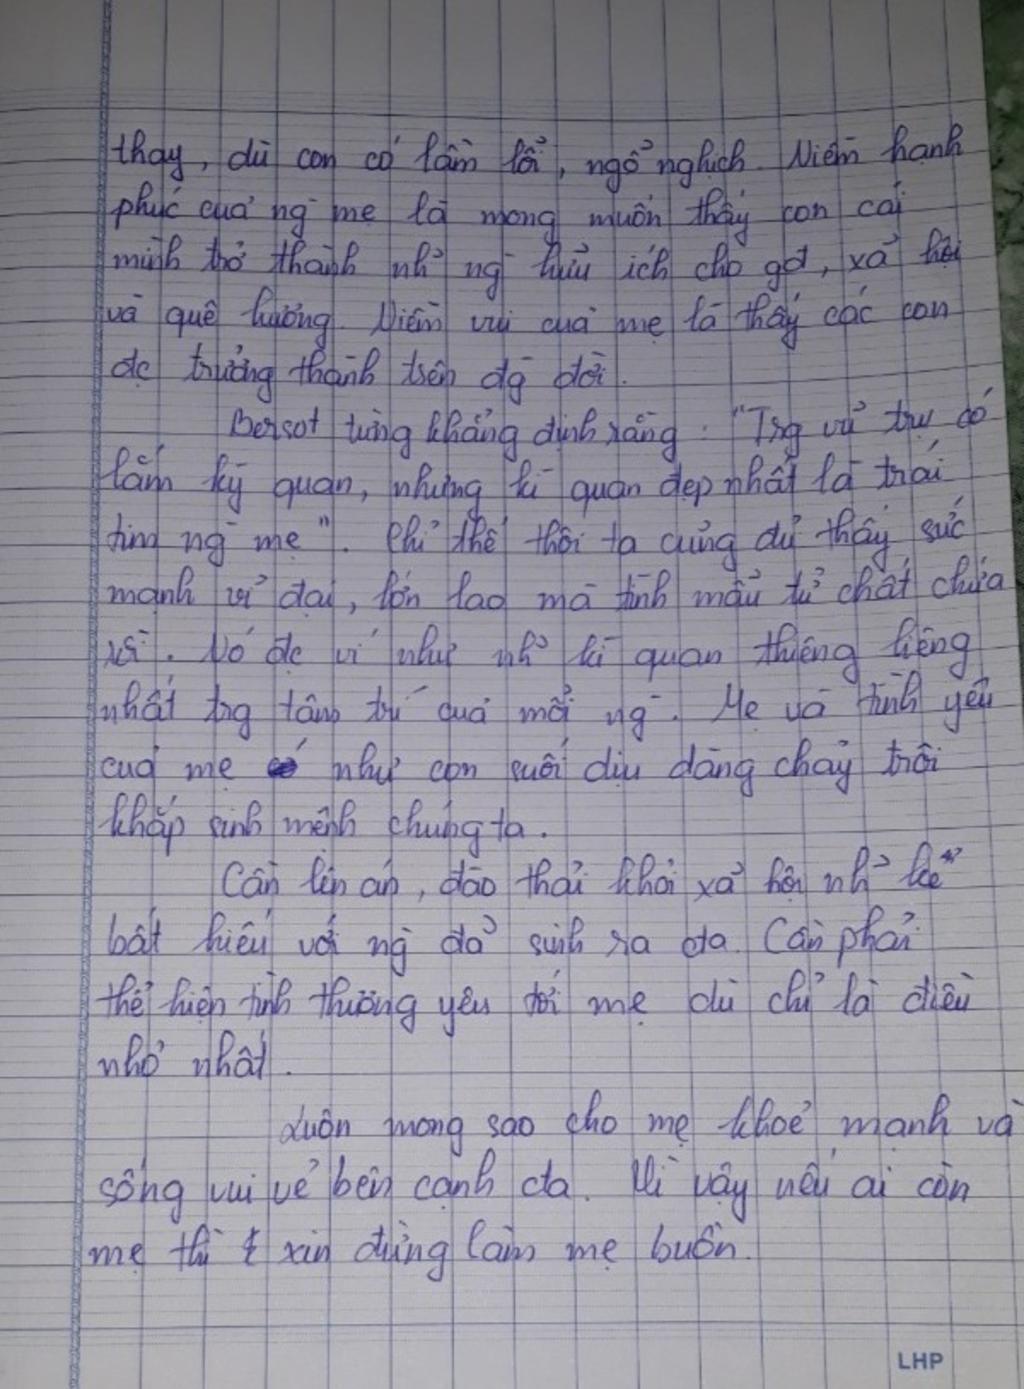 thay, dù con có lầm lỗi, ngổ nghịch. Niềm hạnh
phúc của ng mẹ là mong muốn thấy con cái
mình trở thành nh~ ng hữu ích cho gđ, xã hội
và quê hương. Niềm vui của mẹ là thấy các con
đc trưởng thành trên đg đời.
Bersot từng khẳng định rằng: "Trg vũ trụ có
lắm kỳ quan, nhưng kì quan đẹp nhất là trái
tim ng mẹ". Chỉ thế thôi ta cũng đủ thấy sức
mạnh vĩ đại, lớn lao mà tình mẫu tử chất chứa
rồi. Nó đc ví như nh~ kì quan thiêng liêng
nhất trg tâm trí của mỗi ng. Mẹ và tình yêu
của mẹ như con suối dịu dàng chảy trôi
khắp sinh mệnh chúng ta.
Cần lên án, đào thải khỏi xã hội nh~ kẻ
bất hiếu với ng đã sinh ra cta. Cần phải
thể hiện tình thương yêu tới mẹ dù chỉ là điều
nhỏ nhất.
Luôn mong sao cho mẹ khoẻ mạnh và
sống vui vẻ bên cạnh cta. Vì vậy nếu ai còn
mẹ thì xin đừng làm mẹ buồn.
LHP